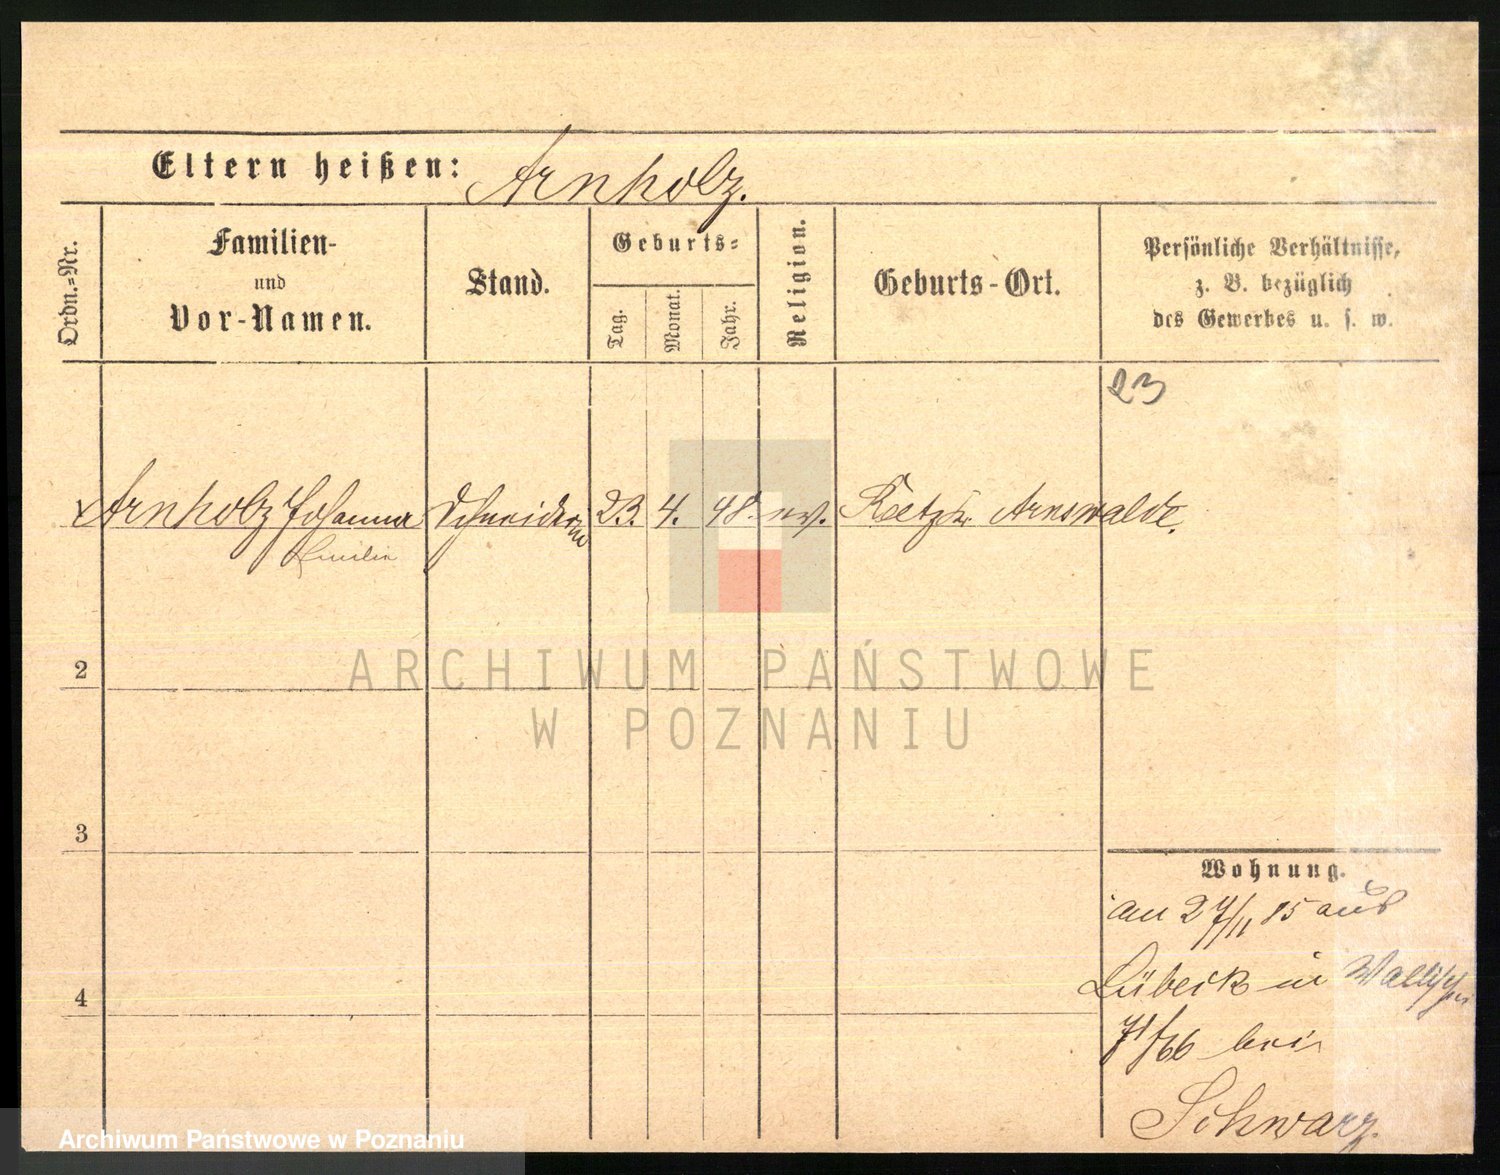 Eltern heißen: Arnholz.
Ordn.=Nr.
Familien-
und
Vor-Namen.
Stand.
Geburts=
Tag.
Monat.
Jahr.
Religion.
Geburts-Ort.
Persönliche Verhältnisse,
z. B. bezüglich
des Gewerbes u. s. w.
23
Arnholz Johanna Schneiderin 23. 4. 48. ev. Arnswalde.
Emilie
ARCHIWUM PAŃSTWOWE
W POZNANIU
2
3
4
Wohnung.
am 27/11 85 aus
Lübeck in Wallischei
bei
Schwarz.
Archiwum Państwowe w Poznaniu